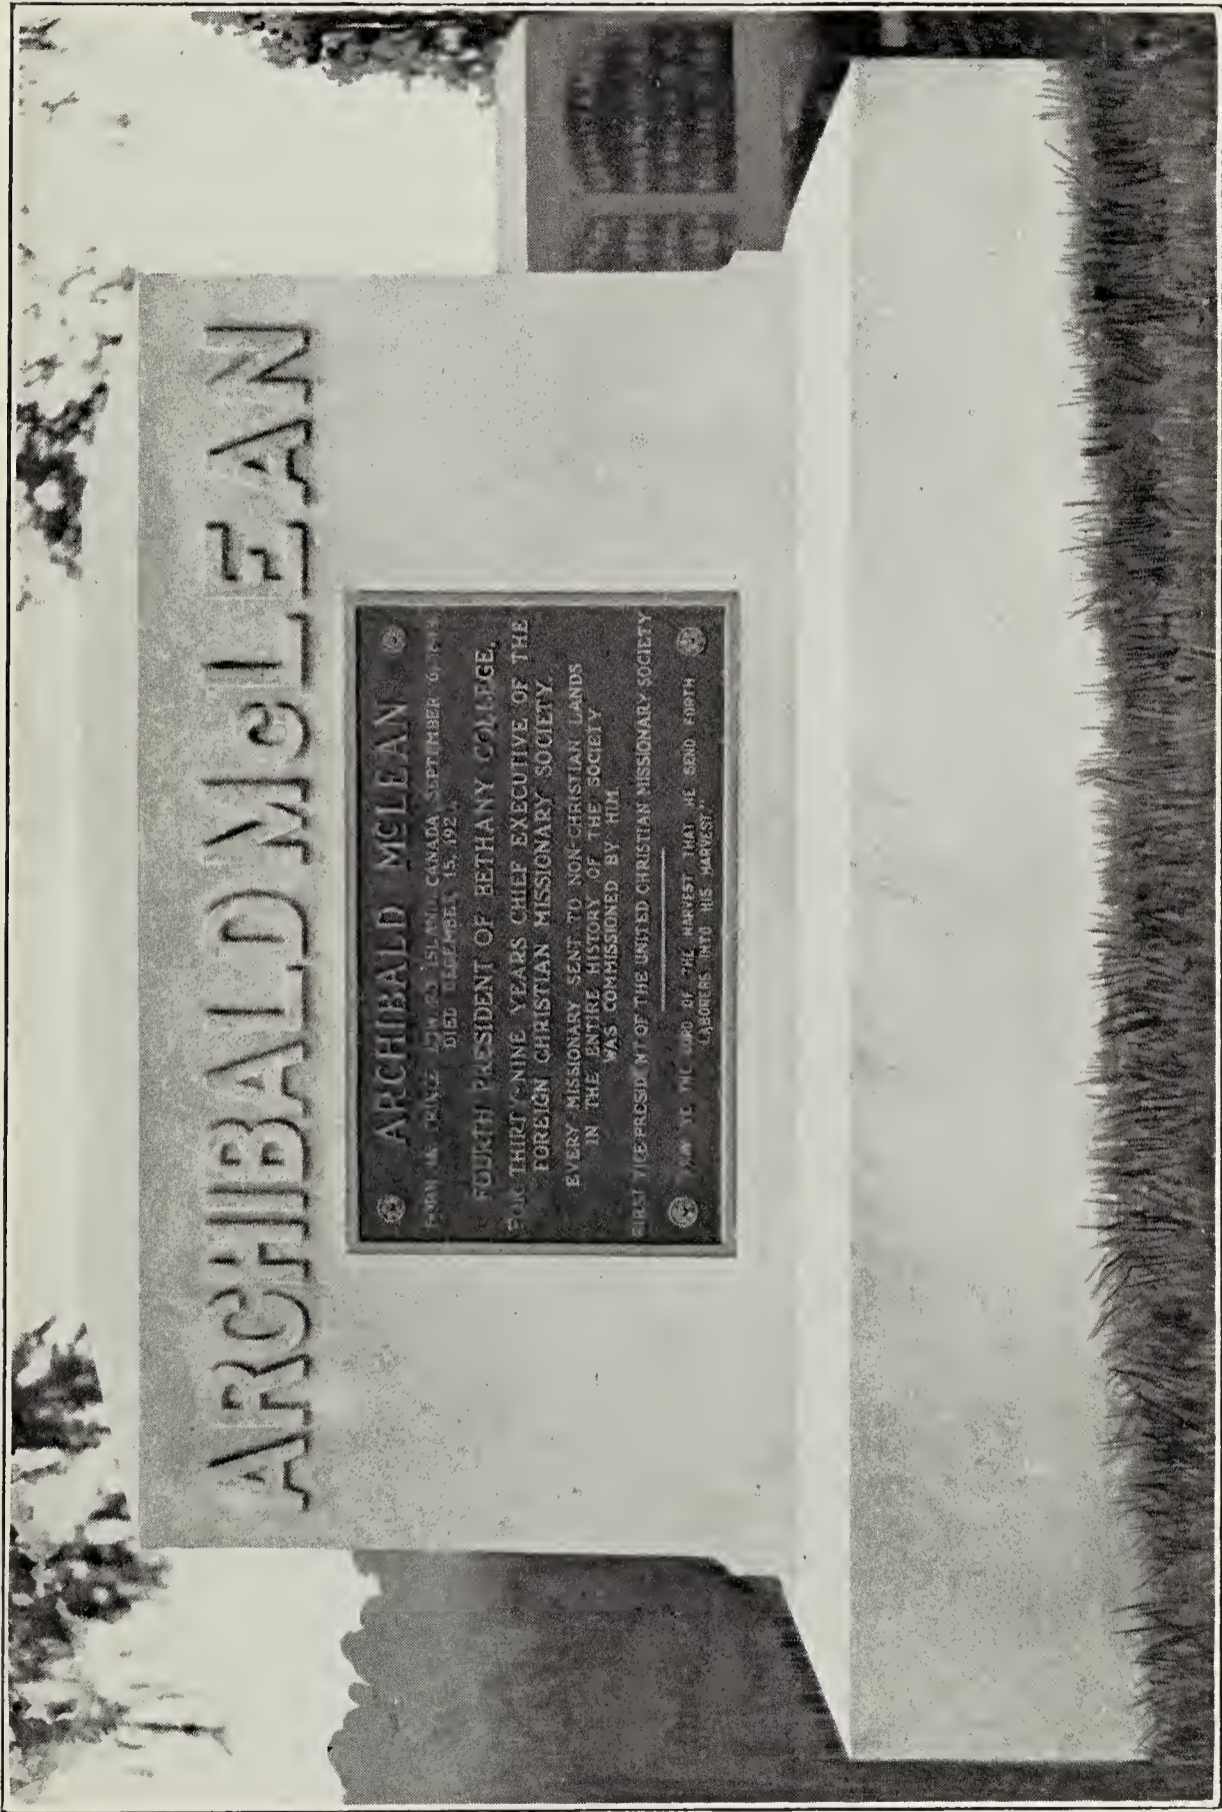 ARCHIBALD McLEAN
ARCHIBALD McLEAN
BORN IN PRINCE EDWARD ISLAND, CANADA, SEPTEMBER 6,
DIED DECEMBER 15, 192
FOURTH PRESIDENT OF BETHANY COLLEGE,
FOR THIRTY-NINE YEARS CHIEF EXECUTIVE OF THE
FOREIGN CHRISTIAN MISSIONARY SOCIETY.
EVERY MISSIONARY SENT TO NON-CHRISTIAN LANDS
IN THE ENTIRE HISTORY OF THE SOCIETY
WAS COMMISSIONED BY HIM.
FIRST VICE PRESIDENT OF THE UNITED CHRISTIAN MISSIONARY SOCIETY
"PRAY YE THE LORD OF THE HARVEST THAT HE SEND FORTH
LABORERS INTO HIS HARVEST"